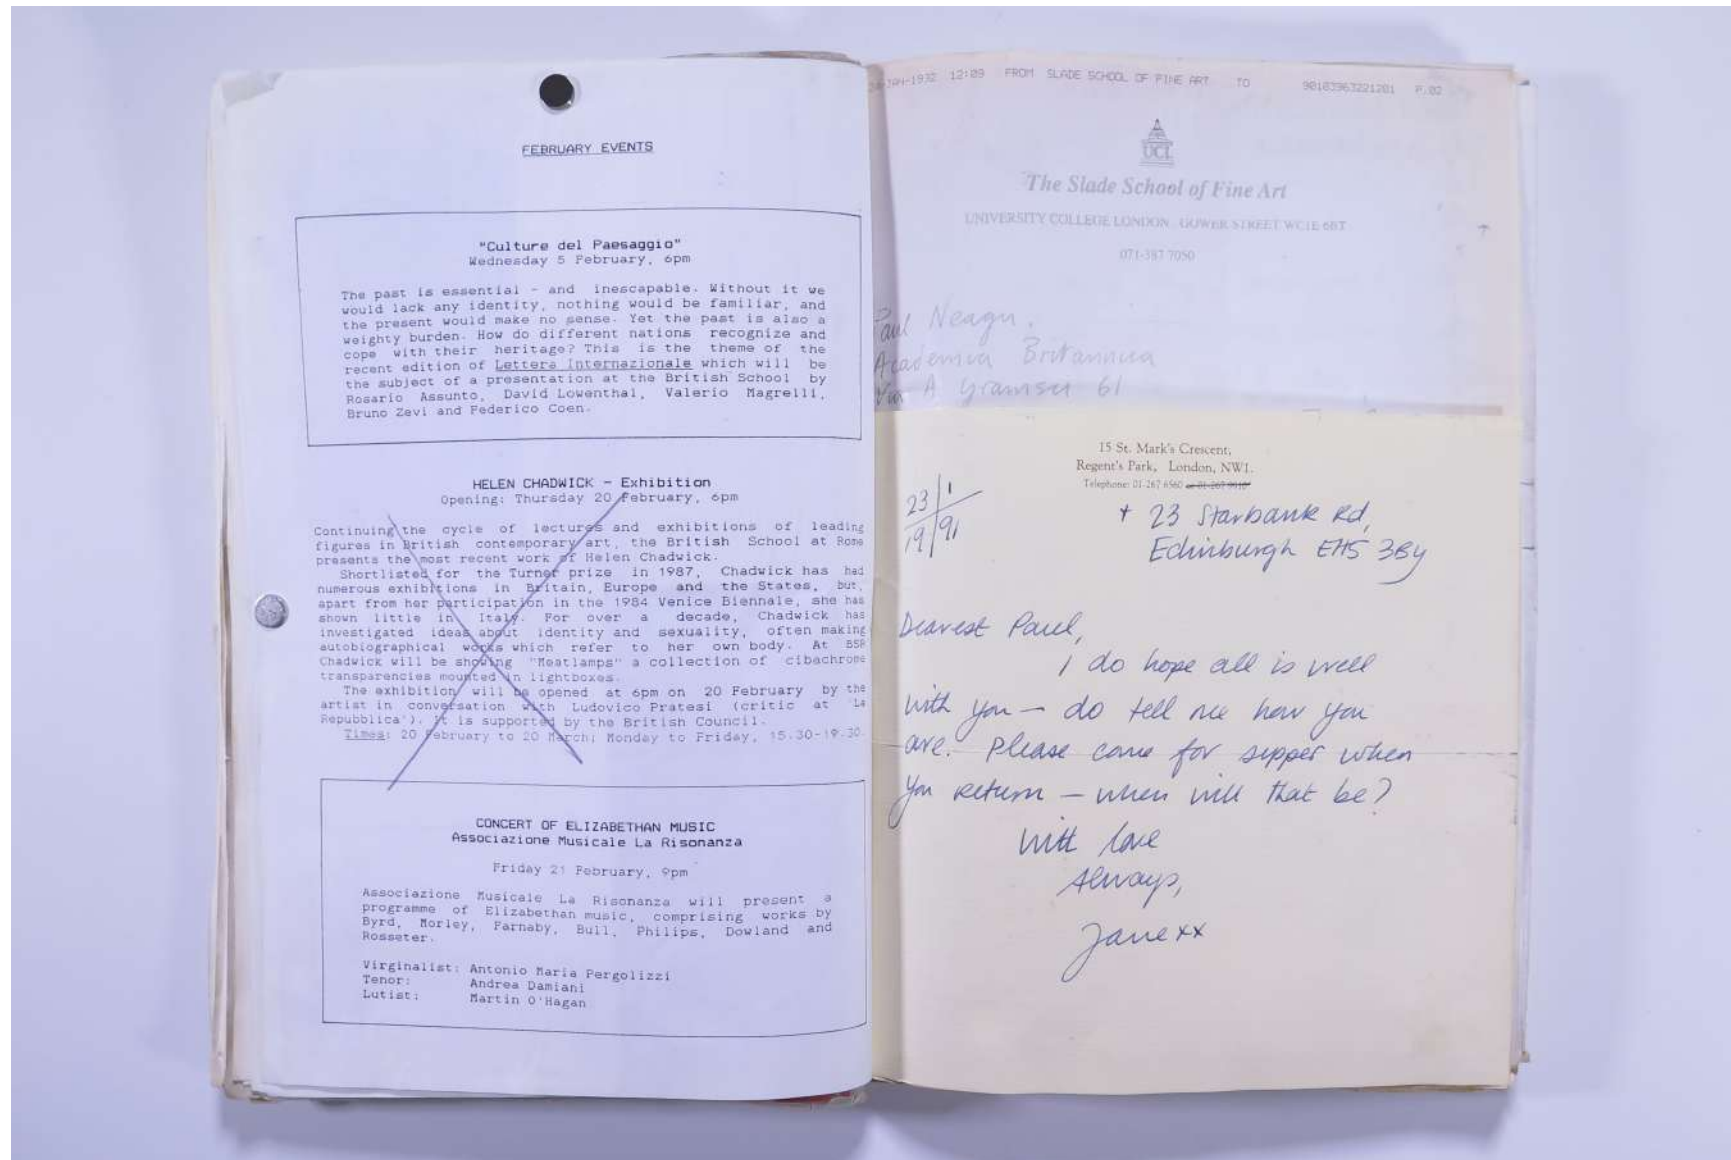 FEBRUARY EVENTS
"Culture del Paesaggio"
Wednesday 5 February, 6pm
The past is essential - and inescapable. Without it we
would lack any identity, nothing would be familiar, and
the present would make no sense. Yet the past is also a
weighty burden. How do different nations recognize and
cope with their heritage? This is the theme of the
recent edition of Lettera Internazionale which will be
the subject of a presentation at the British School by
Rosario Assunto, David Lowenthal, Valerio Magrelli,
Bruno Zevi and Federico Coen.
HELEN CHADWICK - Exhibition
Opening: Thursday 20 February, 6pm
Continuing the cycle of lectures and exhibitions of leading
figures in British contemporary art, the British School at Rome
presents the most recent work of Helen Chadwick.
Shortlisted for the Turner prize in 1987, Chadwick has had
numerous exhibitions in Britain, Europe and the States, but,
apart from her participation in the 1984 Venice Biennale, she has
shown little in Italy. For over a decade, Chadwick has
investigated ideas about identity and sexuality, often making
autobiographical works which refer to her own body. At BSR
Chadwick will be showing "Meatlamps" a collection of cibachrome
transparencies mounted in lightboxes.
The exhibition will be opened at 6pm on 20 February by the
artist in conversation with Ludovico Pratesi (critic at 'La
Repubblica'). It is supported by the British Council.
Times: 20 February to 20 March; Monday to Friday, 15.30-19.30.
CONCERT OF ELIZABETHAN MUSIC
Associazione Musicale La Risonanza
Friday 21 February, 9pm
Associazione Musicale La Risonanza will present a
programme of Elizabethan music, comprising works by
Byrd, Morley, Farnaby, Bull, Philips, Dowland and
Rosseter.
Virginalist: Antonio Maria Pergolizzi
Tenor: Andrea Damiani
Lutist: Martin O'Hagan
JAN-1932 12:09 FROM SLADE SCHOOL OF FINE ART TO 90103963221201 P.02
UCL
The Slade School of Fine Art
UNIVERSITY COLLEGE LONDON GOWER STREET WC1E 6BT
071-387 7050
Paul Neagu.
Academia Britannica
Via A Gramsci 61
15 St. Mark's Crescent,
Regent's Park, London, NW1.
Telephone: 01-267 6560 or 01-267 9910
23/1
19/91
+ 23 Starbank Rd,
Edinburgh EH5 3BY
Dearest Paul,
I do hope all is well
with you — do tell me how you
are. Please come for supper when
you return — when will that be?
With love
Always,
Jane xx